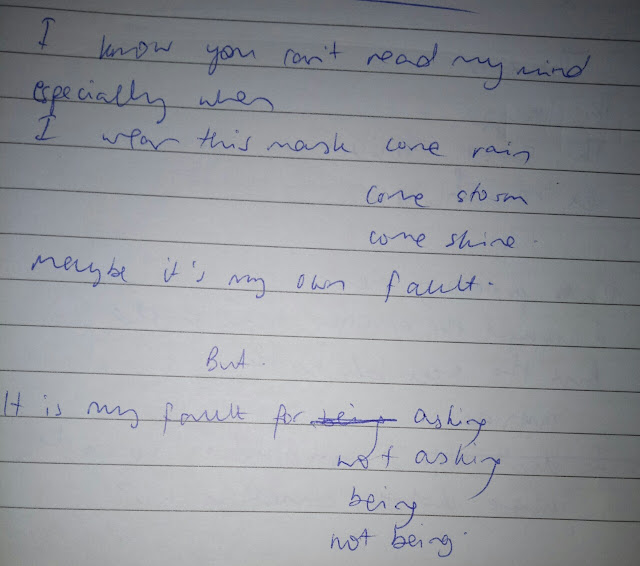 I know you can't read my mind
especially when
I wear this mask come rain
come storm
come shine.
maybe it's my own fault.
But.
It is my fault for being asking
not asking
being
not being.